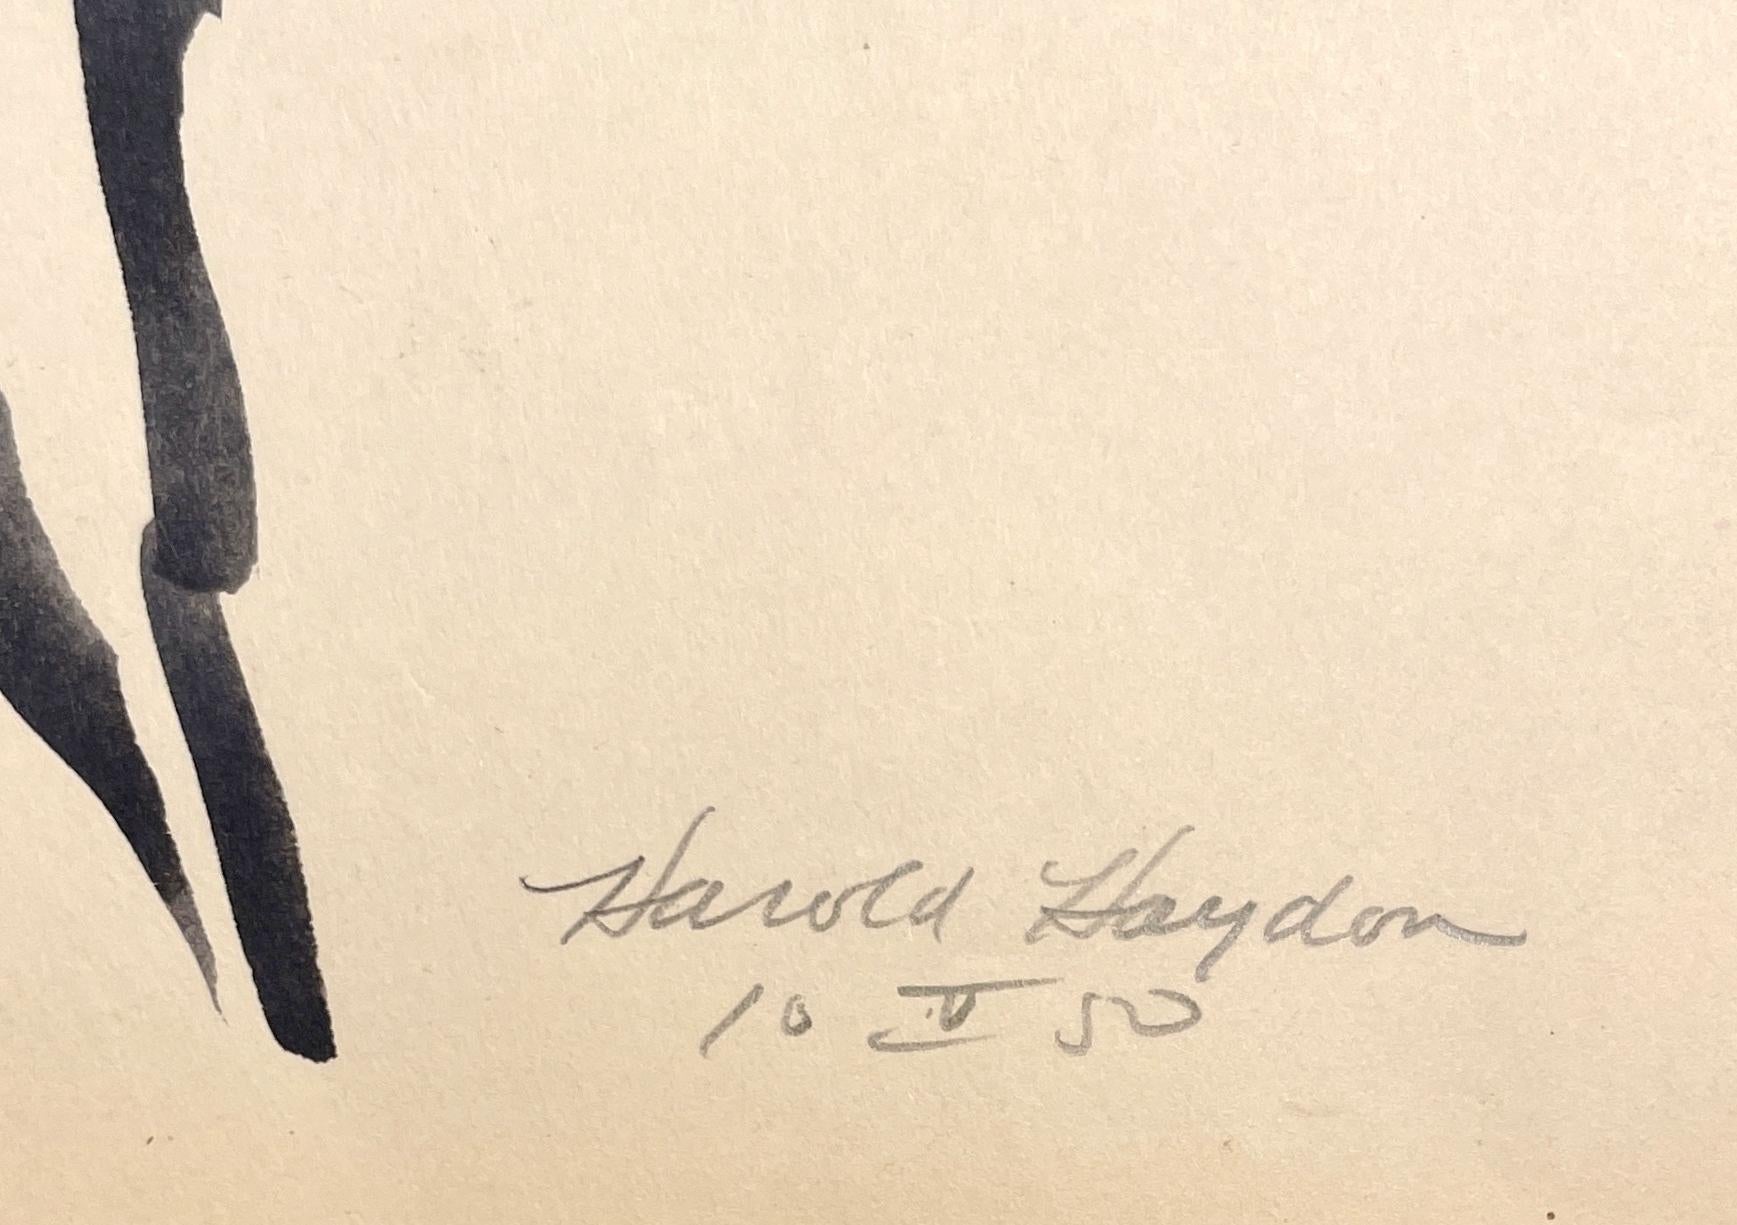 Harold Haydon
10 V 50